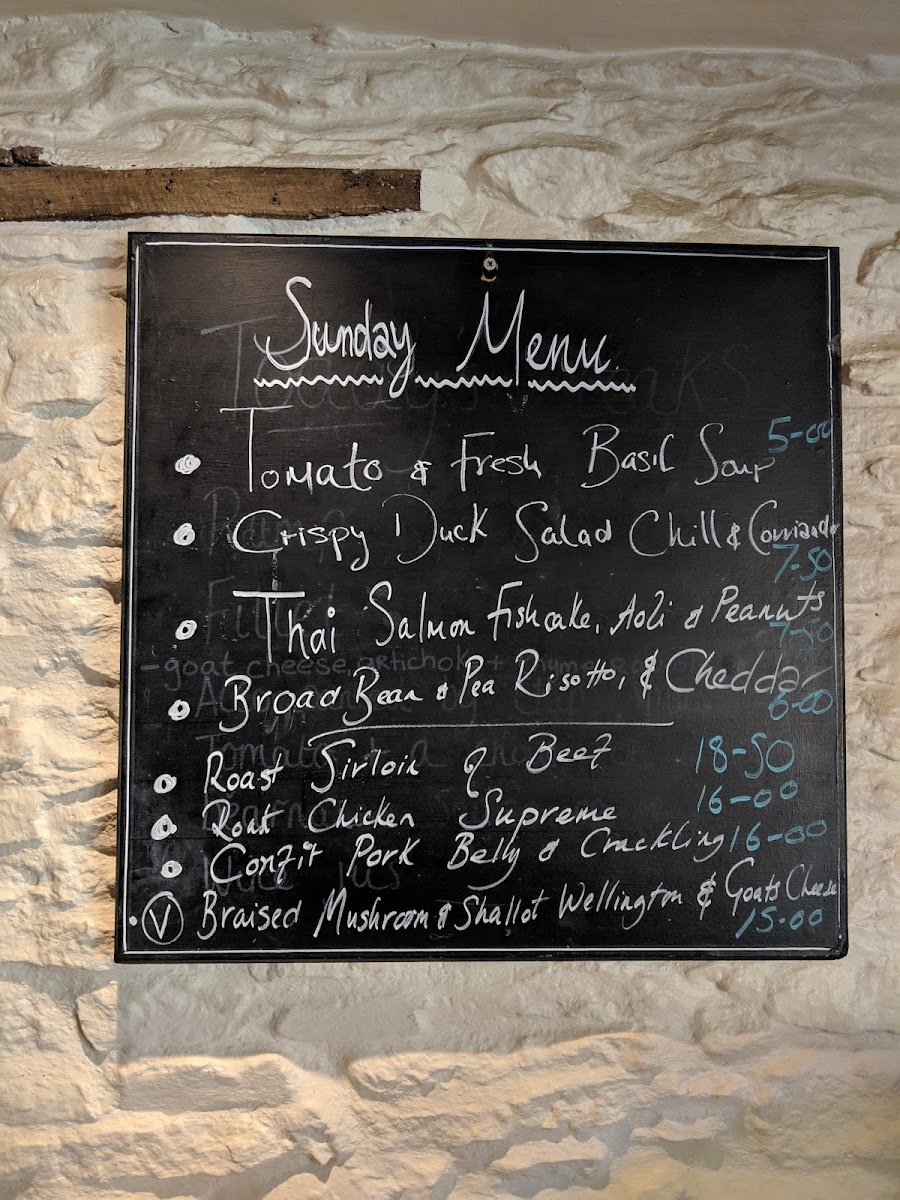 Sunday Menu
Tomato & Fresh Basil Soup 5-00
Crispy Duck Salad Chill & Corriander
7-50
Thai Salmon Fishcake, Aoli & Peanuts
7-50
Broad Bean & Pea Risotto, & Cheddar
6-00
Roast Sirloin of Beef 18-50
Roast Chicken Supreme 16-00
Confit Pork Belly & Crackling 16-00
V Braised Mushroom & Shallot Wellington & Goats Cheese
15-00